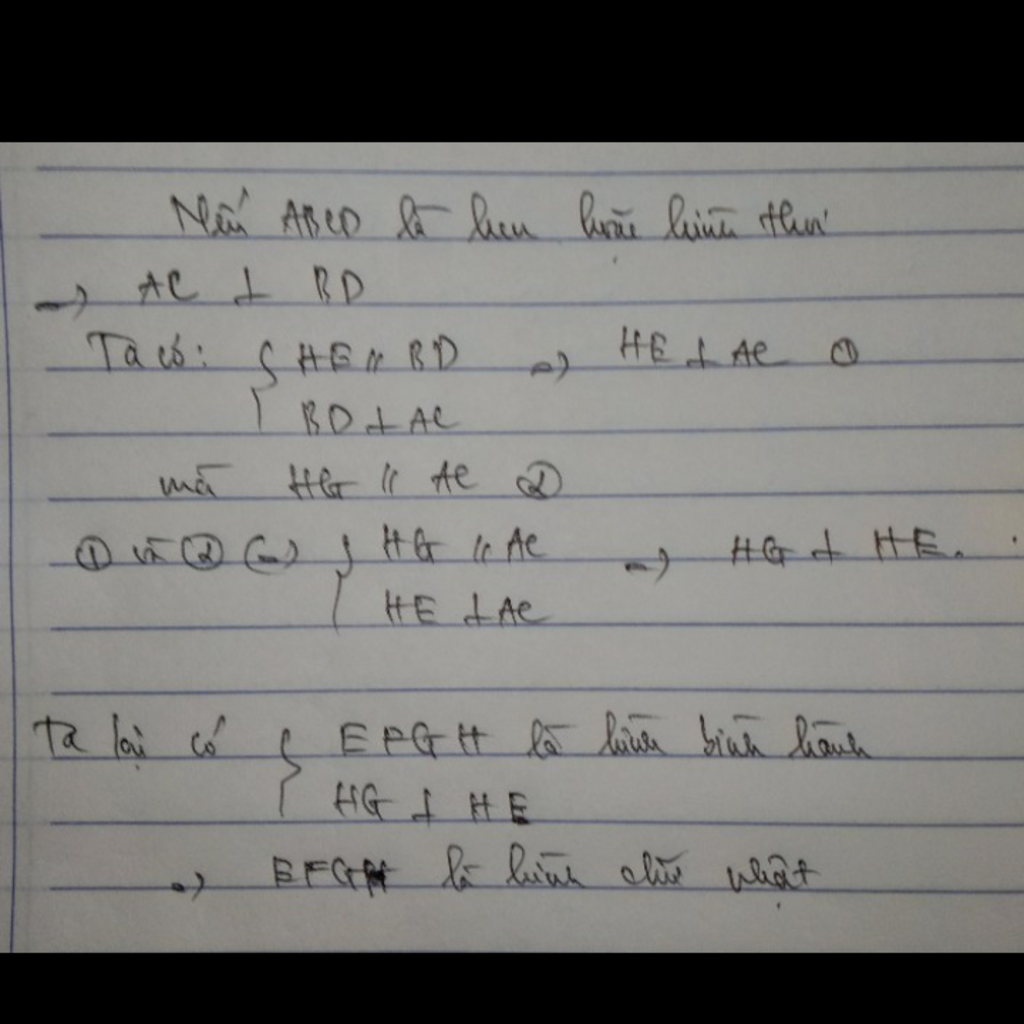 Nếu ABCD là hv hoặc hình thoi
→ AC ⊥ BD
Ta có: { HE // BD → HE ⊥ AC ①
BD ⊥ AC
mà HG // AC ②
① và ② (→) { HG // AC → HG ⊥ HE.
HE ⊥ AC
Ta lại có { EFGH là hình bình hành
HG ⊥ HE
→ EFGH là hình chữ nhật